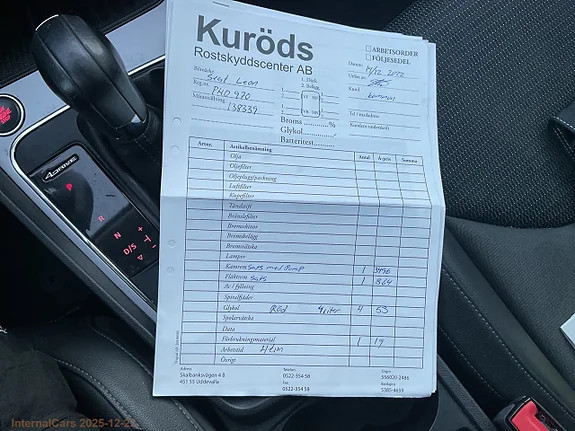 Kuröds
Rostskyddscenter AB
ARBETSORDER
FÖLJESEDEL
Bilmärke Seat Leon
Datum: 14/12 2022
Reg.nr. PHO 970
Kund
Mätarställning 138339
Broms ............%
Glykol............
Batteritest........
Tel / mobil
Kundens underskrift
Art.nr. Artikelbenämning Antal Á pris Summa
Olja
Oljefilter
Oljeplugg/packning
Luftfilter
Kupefilter
Tändstift
Bränslefilter
Bromsskivor
Bromsbelägg
Bromsvätska
Lampor
Kamrem sats med Pump 1 3496
Flaktrem sats 1 864
Ac / fyllning
Spiralfjäder
Glykol Röd 4 liter 4 53
Spolarvätska
Data
Förbrukningsmaterial 1 19
Arbetstid 4 tim
Övrigt
Adress Telefon Org.nr
Skalbanksvägen 4 B 0522-354 58 556020-2486
451 55 Uddevalla Fax Bankgiro
0522-354 58 5385-4659
4DRIVE
P
R
N
D/S
+
-
InternalCars 2025-12-2